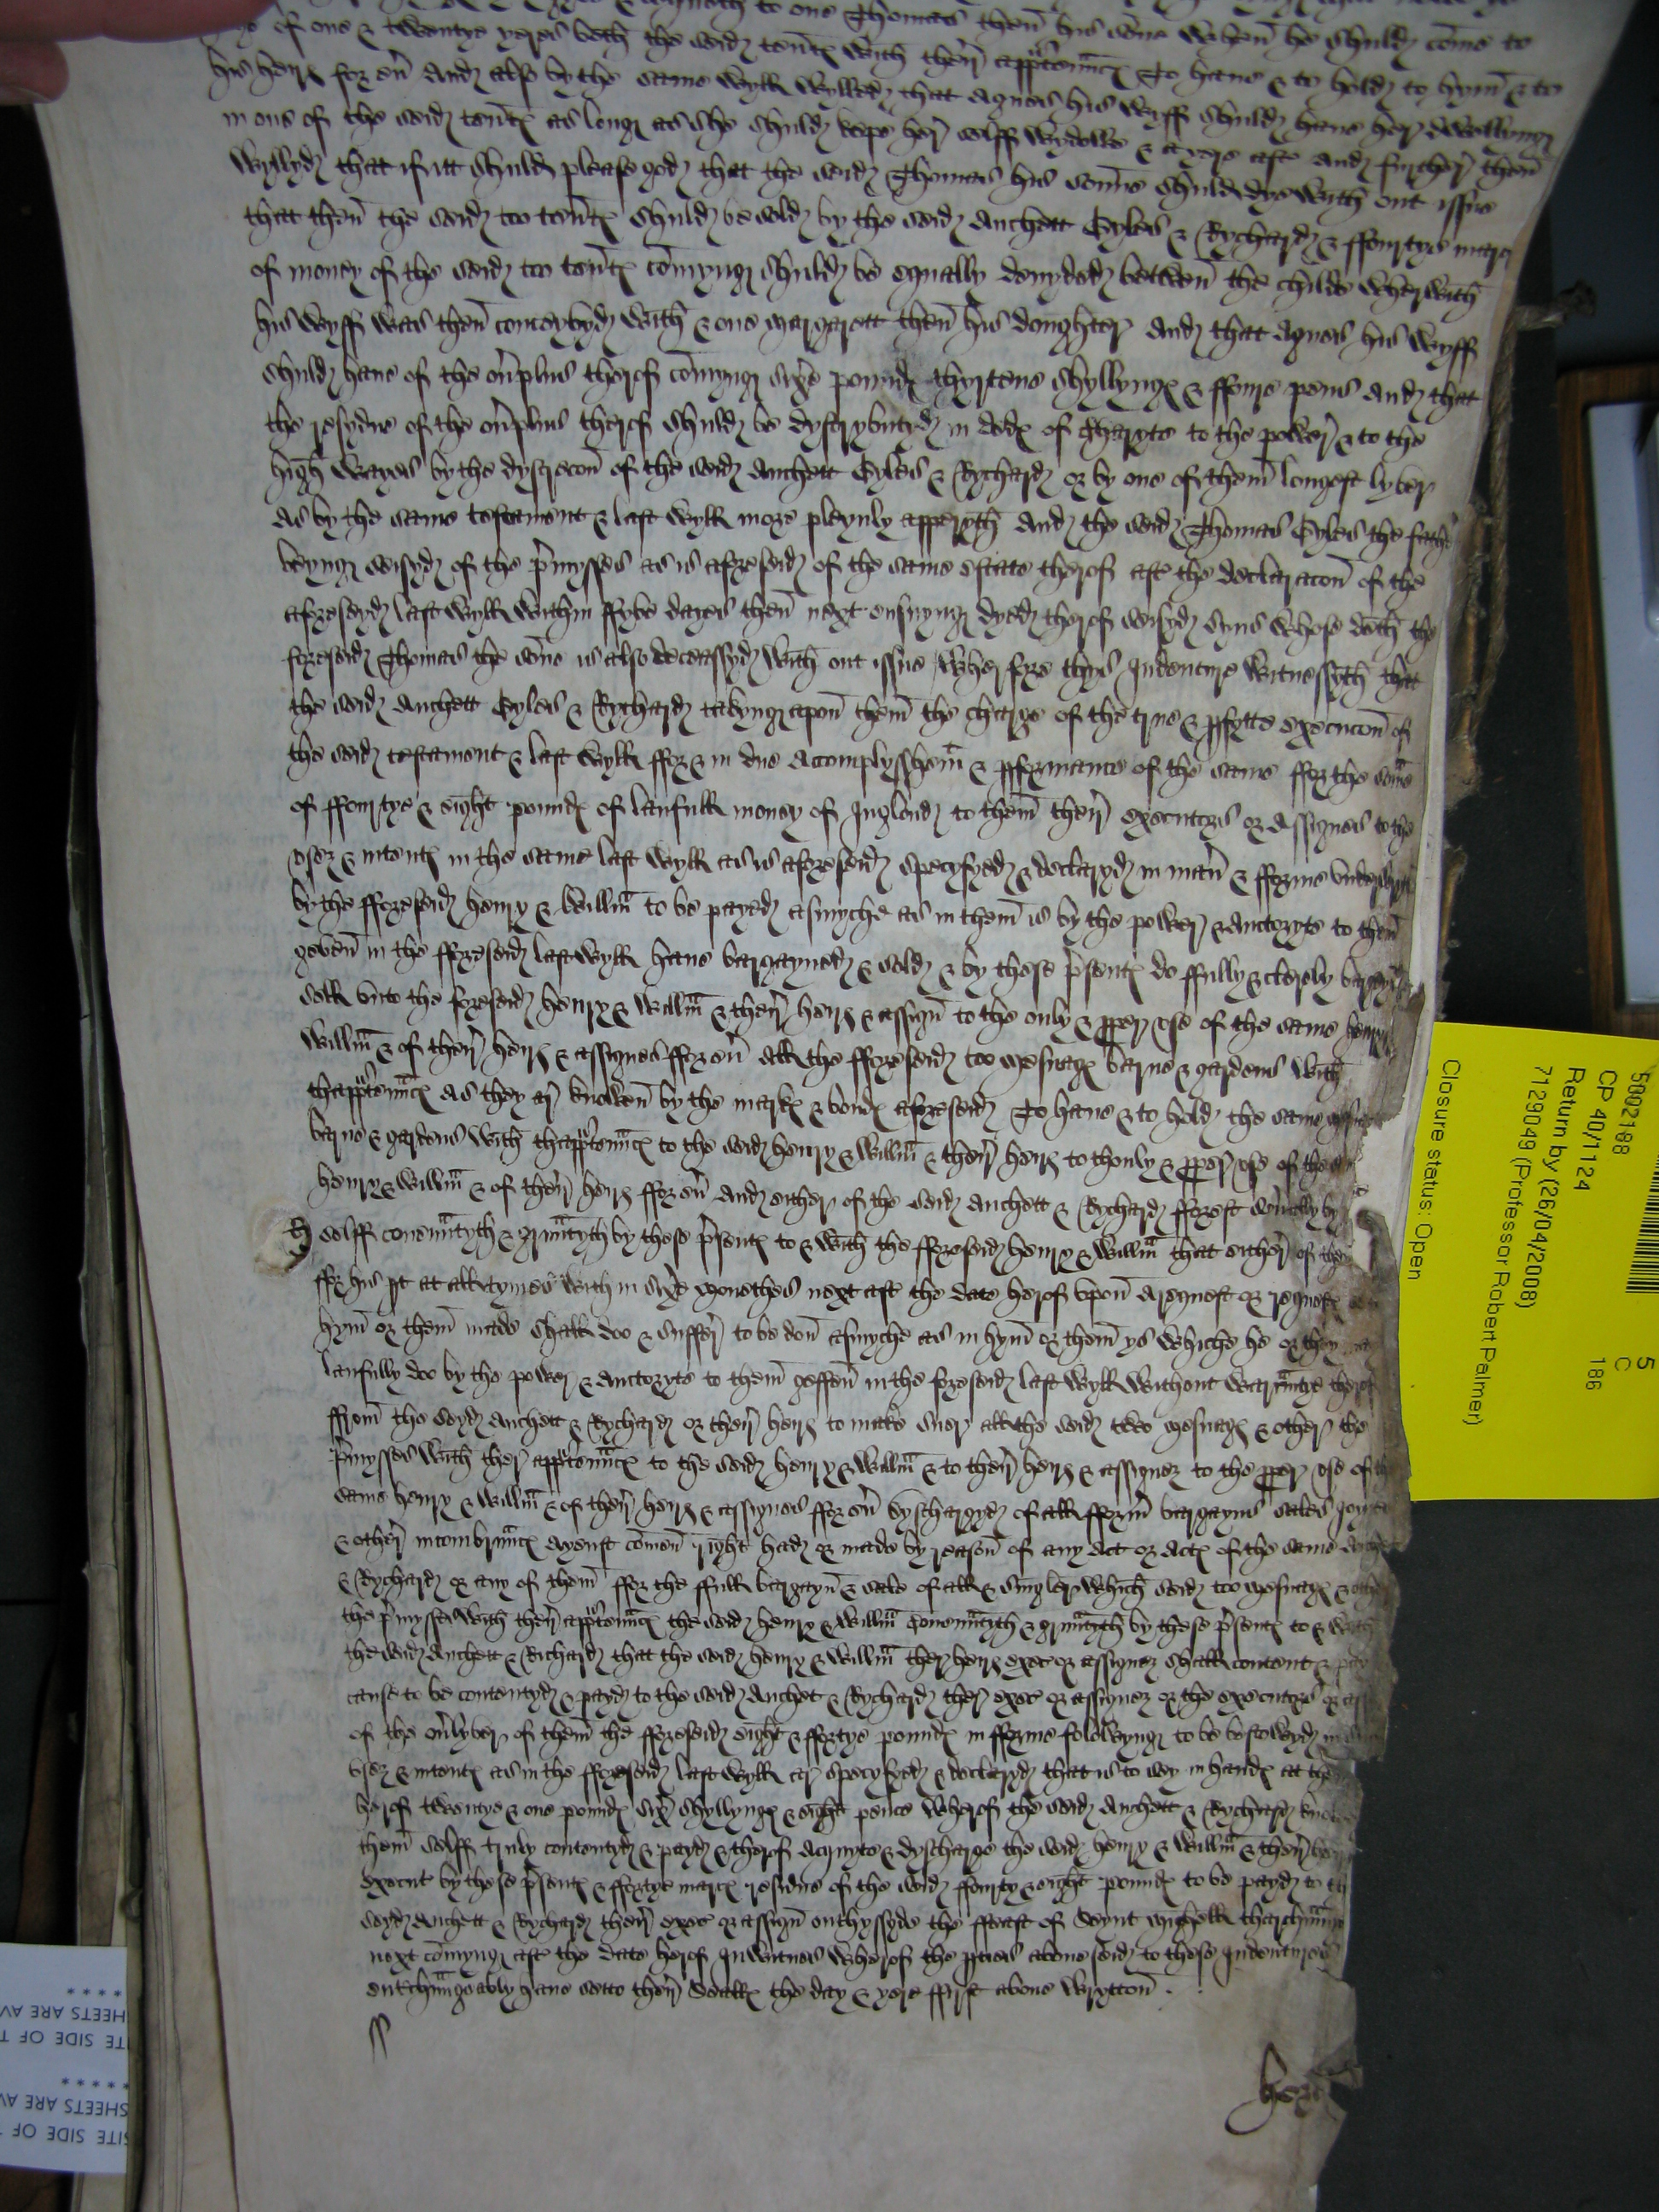 to one Thomas then his sone when he shuld come to
of one & twentye yeres both the seid tentx with ther apptenncx To haue & to hold to hym & to
his heirs for eu~ And also by the same wyll wylled that Agnes his wyff shuld haue her dwellyng
in one of the seid tentx as long as she shuld kepe her selff wydowe & after and further then
wyllyd that if itt shuld please god that the seid Thomas his sonne shuld dye with out issue
that then the seid too tentx shuld be sold by the seid Anchett Gyles & Rychard & ffourtye marcx
of money of the seid too tentx comyng shuld be equally deuyded between the childe wherwith
his wyff was then conceybyd with & one Margarett then his doughter And that Agnes his wyff
shuld haue of the ou~plus therof comyng sixe poundx thyrtene shyllyngx & ffoure pens And that
the resydue of the ou~plus therof shuld be dystrybutyd in dedx of charyte to the power & to the
high wayes by the dyscrecon of the seid Anchett Gyles & Rychard or by one of them longest lyber
As by the same testament & last wyll more pleynly apperyth And the seid Thomas Gyles the father
beyng seisyd of the p~mysses as is aforeseid of the same estate therof aft the declaracon of the
aforeseyd last wyll within ffybe dayes then next ensuyng dyed therof seisyd syns whose deth the
foreseid Thomas the sone is also deceassyd with out issue wherfore thys Indenture witnessyth that
the seid Anchett Gyles & Rychard takyng apon them the charge of the true & pfytte execucon of
the seid testament & last wyll ffor & in due accomplysshem~ & pformance of the same ffor the some
of ffourtye & eight poundx of laufull money of Inglond to them ther executors or assignes to the
vsez & intentx in the same last wyll as is aforeseid specyfyed & declaryd in man~ & fforme
by the fforeseid henry & Willm~ to be payed asmyche as in them is by the power & auctoryte to them
geben in the fforeseid last wyll haue bargayned & sold & by these p~sentx do ffully & clerely bargayn
sell vnto the foreseid henry & Willm~ & ther heirs & assign~ to the only & pper vse of the same henry
Willm~ & of ther heirs & assignes ffor eu~ all the fforeseid too mesuagx barne & gardens with
thapptenncx As they ar knowen by the markx & bondx aforeseid To haue & to hold the same
barne & gardens with thapptenncx to the seid henry & Willm~ & ther heirs to thonly & pper vse of the
henry & Willm~ & of ther heirs ffor eu~ And either of the seid Anchett & Rychard by
selff couenntyth & grntyth by these p~sentx to & with the fforeseid henry & Willm~ that either of them
ffor his pt at all tymes with in sixe monethes next aft the date herof vpon a request or requestx
hym or them made shall doo & suffer to be don asmyche as in hym or them ys whiche he or they
laufully doo by the power & auctoryte to them geffen in the foreseid last wyll without warrntye therof
ffrom the seyd Anchett & Rychard or ther heirs to make suer all the seid two mesuagx & other the
p~mysses with ther apptenncx to the seid henry & Willm~ & to ther heirs & assignez to the pper vse of the
same henry & Willm~ & of ther heirs & assignes ffor eu~ dyschargyd of all fform~ bargayns sales
& other incombrncx ayenst comen right had or made by reason of any act or actx of the same
& Rychard or any of them ffor the ffull bargayn & sale of all & singler which seid too mesuagx &
the p~mysses with ther apptenncx the seid henry & Willm~ couenntyth & grntyth by these p~sentx to & with
the seid Anchett & Richard that the seid henry & Willm~ ther heirs exec or assignez shall content & pay
cause to be contentyd & payd to the seid Anchet & Rychard ther exec or assignez or the executors or
of the ou~lyber of them the fforeseid eight & ffortye poundx in fforme folowyng to be bestowyd in
vsez & intentx as in the fforeseid last wyll ar specyfyed & declaryd that is to sey in handx at the
herof twentye & one poundx sixe shyllyngx & eight pence wherof the seid Anchett & Rychard
them selff truly contentyd & payd & therof acquyte & dyscharge the seid henry & Willm~ & ther
execut by these p~sentx & ffortye marcx residue of the seid ffourty & eight poundx to be payd to the
seyd Anchett & Rychard ther exec or assign~ onthyssyde the ffeast of Seynt Mighell tharchngell
next comyng aft the date herof In witnes wherof the pties aboue seid to these Indentures
entrchngeably haue sette ther seallx the day & yere ffirst aboue wrytton .
5002188
5
CP 40/1124
C
186
Return by (26/04/2008)
7129049 (Professor Robert Palmer)
Closure status: Open
* * * *
HEETS ARE AV
TE SIDE OF T
* * * * *
SHEETS ARE AV
SITE SIDE OF T